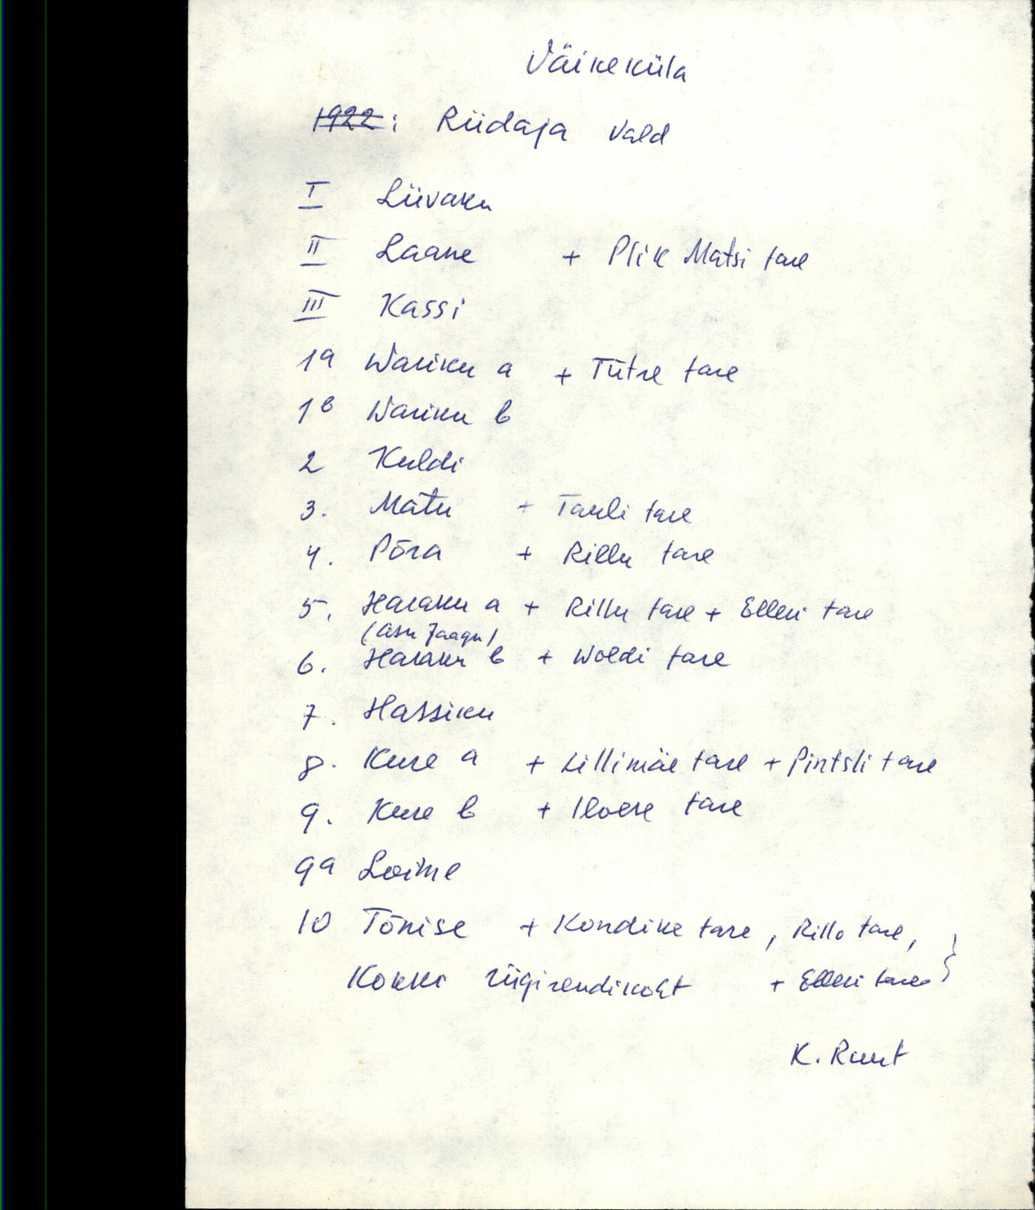 Väikeküla
1922: Riidaja vald
I Liivaku
II Laane + Plik Matsi tare
III Kassi
1a Wariku a + Tütre tare
1b Wariku b
2 Kuldi
3. Matu + Tauli tare
4. Põra + Rillu tare
5. Haraku a + Rillu tare + Elleri tare
(Asu Jaagu)
6. Haraku b + Woldi tare
7. Hassiku
8. Kure a + Lillimäe tare + Pintsli tare
9. Kure b + tare
9a Loime
10 Tõnise + Kondike tare, Rillo tare,
Kokki riigirendikoht + Elleri tare
K. Ruut